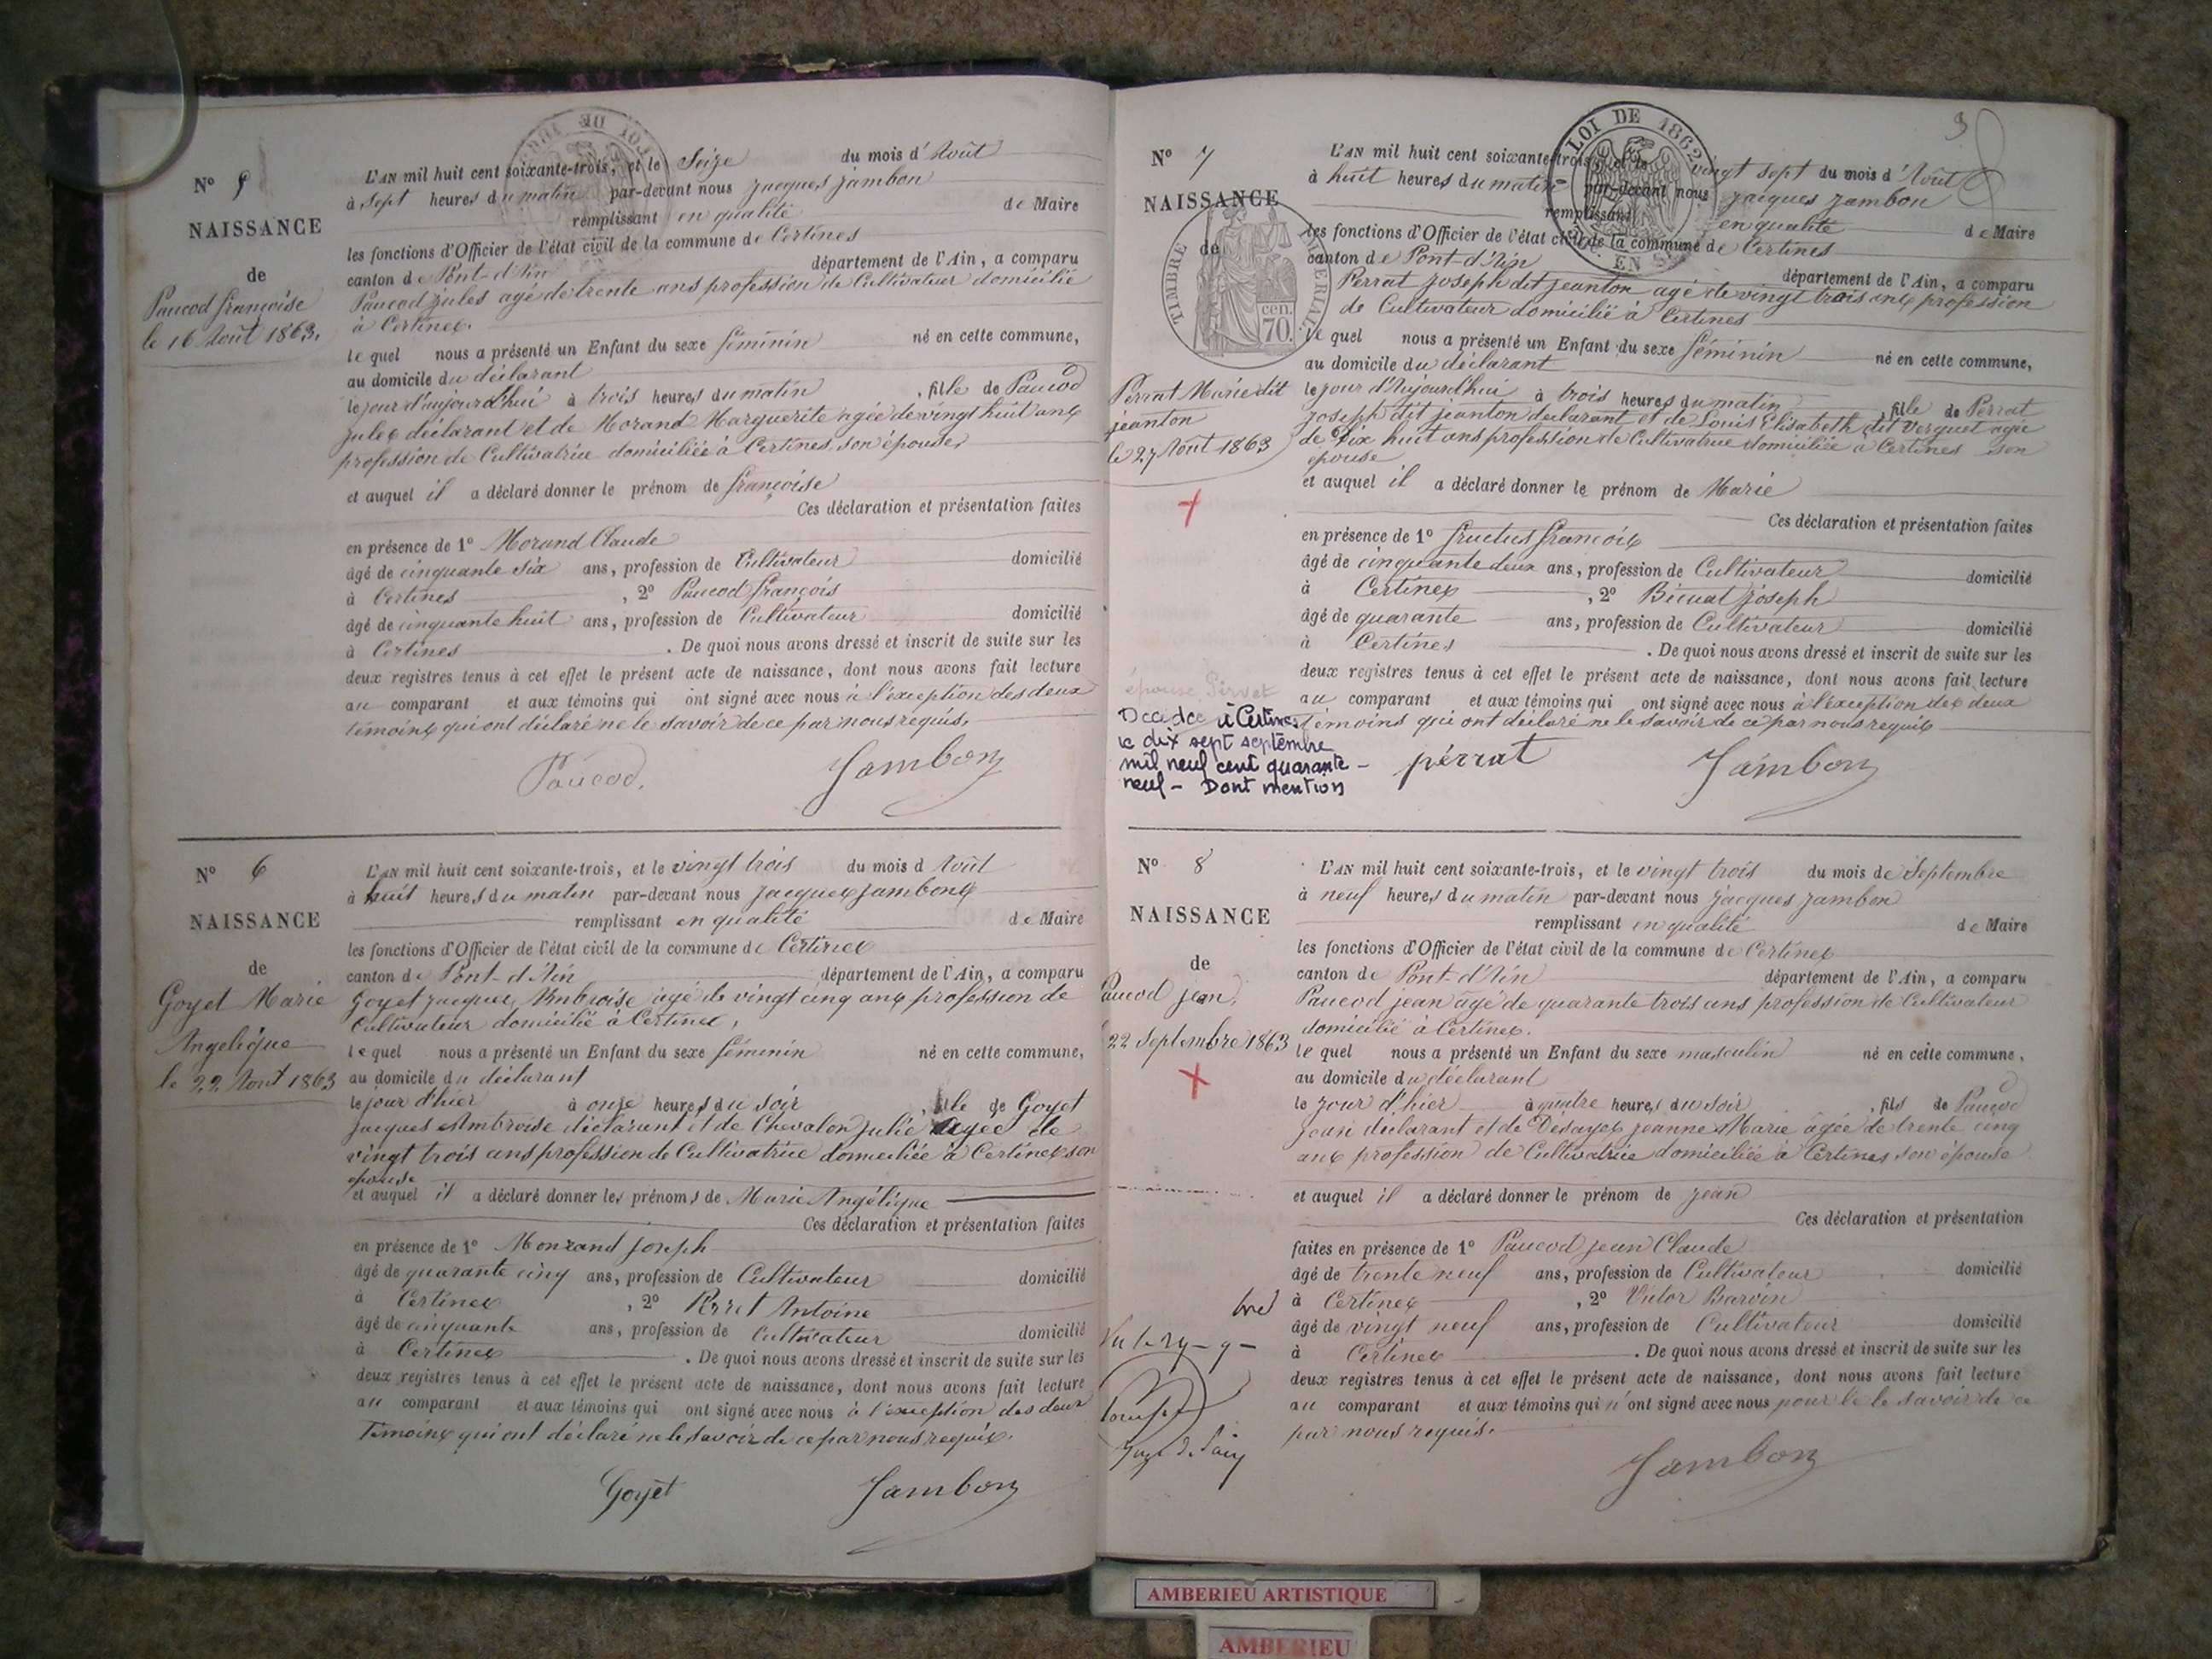 N° 5
NAISSANCE
de
Paucod françoise
le 16 Août 1863.
L'AN mil huit cent soixante-trois, et le Seize du mois d'Août
à sept heures du matin par-devant nous jacques jambon
remplissant en qualité de Maire
les fonctions d'Officier de l'état civil de la commune de Certines
canton de Pont-d'Ain département de l'Ain, a comparu
Paucod jules agé de trente ans profession de Cultivateur domicilié
à Certines.
le quel nous a présenté un Enfant du sexe féminin né en cette commune,
au domicile du déclarant
le jour d'aujourd'hui à trois heures du matin, fille de Paucod
jules déclarant et de Morand Marguerite agée de vingt huit ans
profession de Cultivatrice domiciliée à Certines, son épouse,
et auquel il a déclaré donner le prénom de françoise
Ces déclaration et présentation faites
en présence de 1° Morand Claude
âgé de cinquante six ans, profession de Cultivateur domicilié
à Certines, 2° Paucod françois
âgé de cinquante huit ans, profession de Cultivateur domicilié
à Certines. De quoi nous avons dressé et inscrit de suite sur les
deux registres tenus à cet effet le présent acte de naissance, dont nous avons fait lecture
au comparant et aux témoins qui ont signé avec nous à l'exception des deux
témoins qui ont déclaré ne le savoir de ce par nous requis.
Paucod. Jambon
N° 6
NAISSANCE
de
Goyet Marie
Angelique
le 22 Août 1863
L'AN mil huit cent soixante-trois, et le vingt trois du mois d Août
à huit heures du matin par-devant nous jacques jambon
remplissant en qualité de Maire
les fonctions d'Officier de l'état civil de la commune de Certines
canton de Pont-d'Ain département de l'Ain, a comparu
Goyet jacques Ambroise agé de vingt cinq ans profession de
Cultivateur domicilié à Certines,
le quel nous a présenté un Enfant du sexe féminin né en cette commune,
au domicile du déclarant
le jour d'hier à onze heures du soir, fille de Goyet
jacques Ambroise déclarant et de Chevalon julie agée de
vingt trois ans profession de Cultivatrice domiciliée à Certines son
épouse
et auquel il a déclaré donner les prénoms de Marie Angélique
Ces déclaration et présentation faites
en présence de 1° Monrand joseph
âgé de quarante cinq ans, profession de Cultivateur domicilié
à Certines, 2° Perret Antoine
âgé de cinquante ans, profession de Cultivateur domicilié
à Certines. De quoi nous avons dressé et inscrit de suite sur les
deux registres tenus à cet effet le présent acte de naissance, dont nous avons fait lecture
au comparant et aux témoins qui ont signé avec nous à l'exception des deux
Témoins qui ont déclaré ne le savoir de ce par nous requis.
Goyet Jambon
LOI DE 1862
TIMBRE IMPERIAL
70 cen.
N° 7
NAISSANCE
de
Perrat Marie dit
jeanton
le 27 Août 1863
L'AN mil huit cent soixante-trois, et le vingt sept du mois d'Août
à huit heures du matin par-devant nous jacques jambon
remplissant en qualité de Maire
les fonctions d'Officier de l'état civil de la commune de Certines
canton de Pont-d'Ain département de l'Ain, a comparu
Perrat joseph dit jeanton agé de vingt trois ans profession
de Cultivateur domicilié à Certines
le quel nous a présenté un Enfant du sexe féminin né en cette commune,
au domicile du déclarant
le jour d'Aujourd'hui à trois heures du matin, fille de Perrat
joseph dit jeanton déclarant et de Louis Elisabeth dit Verguet agée
de Dix huit ans profession de Cultivatrice domiciliée à Certines son
épouse
et auquel il a déclaré donner le prénom de Marie
Ces déclaration et présentation faites
en présence de 1° fructus françois
âgé de cinquante deux ans, profession de Cultivateur domicilié
à Certines, 2° Bicuat joseph
âgé de quarante ans, profession de Cultivateur domicilié
à Certines. De quoi nous avons dressé et inscrit de suite sur les
deux registres tenus à cet effet le présent acte de naissance, dont nous avons fait lecture
au comparant et aux témoins qui ont signé avec nous à l'exception des deux
témoins qui ont déclaré ne le savoir de ce par nous requis
épouse
Décédée à Certines
le dix sept septembre
mil neuf cent quarante-
neuf - Dont mention
pérrat Jambon
N° 8
NAISSANCE
de
Paucod jean,
22 Septembre 1863
L'AN mil huit cent soixante-trois, et le vingt trois du mois de Septembre
à neuf heures du matin par-devant nous jacques jambon
remplissant en qualité de Maire
les fonctions d'Officier de l'état civil de la commune de Certines
canton de Pont-d'Ain département de l'Ain, a comparu
Paucod jean agé de quarante trois ans profession de Cultivateur
domicilié à Certines.
le quel nous a présenté un Enfant du sexe masculin né en cette commune,
au domicile du déclarant
le jour d'hier à quatre heures du soir, fils de Paucod
jean déclarant et de Désayes jeanne Marie âgée de trente cinq
ans profession de Cultivatrice domiciliée à Certines son épouse
et auquel il a déclaré donner le prénom de jean
Ces déclaration et présentation
faites en présence de 1° Paucod jean Claude
âgé de trente neuf ans, profession de Cultivateur domicilié
à Certines, 2° Victor Barvin
âgé de vingt neuf ans, profession de Cultivateur domicilié
à Certines. De quoi nous avons dressé et inscrit de suite sur les
deux registres tenus à cet effet le présent acte de naissance, dont nous avons fait lecture
au comparant et aux témoins qui n'ont signé avec nous pour le le savoir de ce
par nous requis.
Juge de Paix
Jambon
AMBERIEU ARTISTIQUE
AMBERIEU